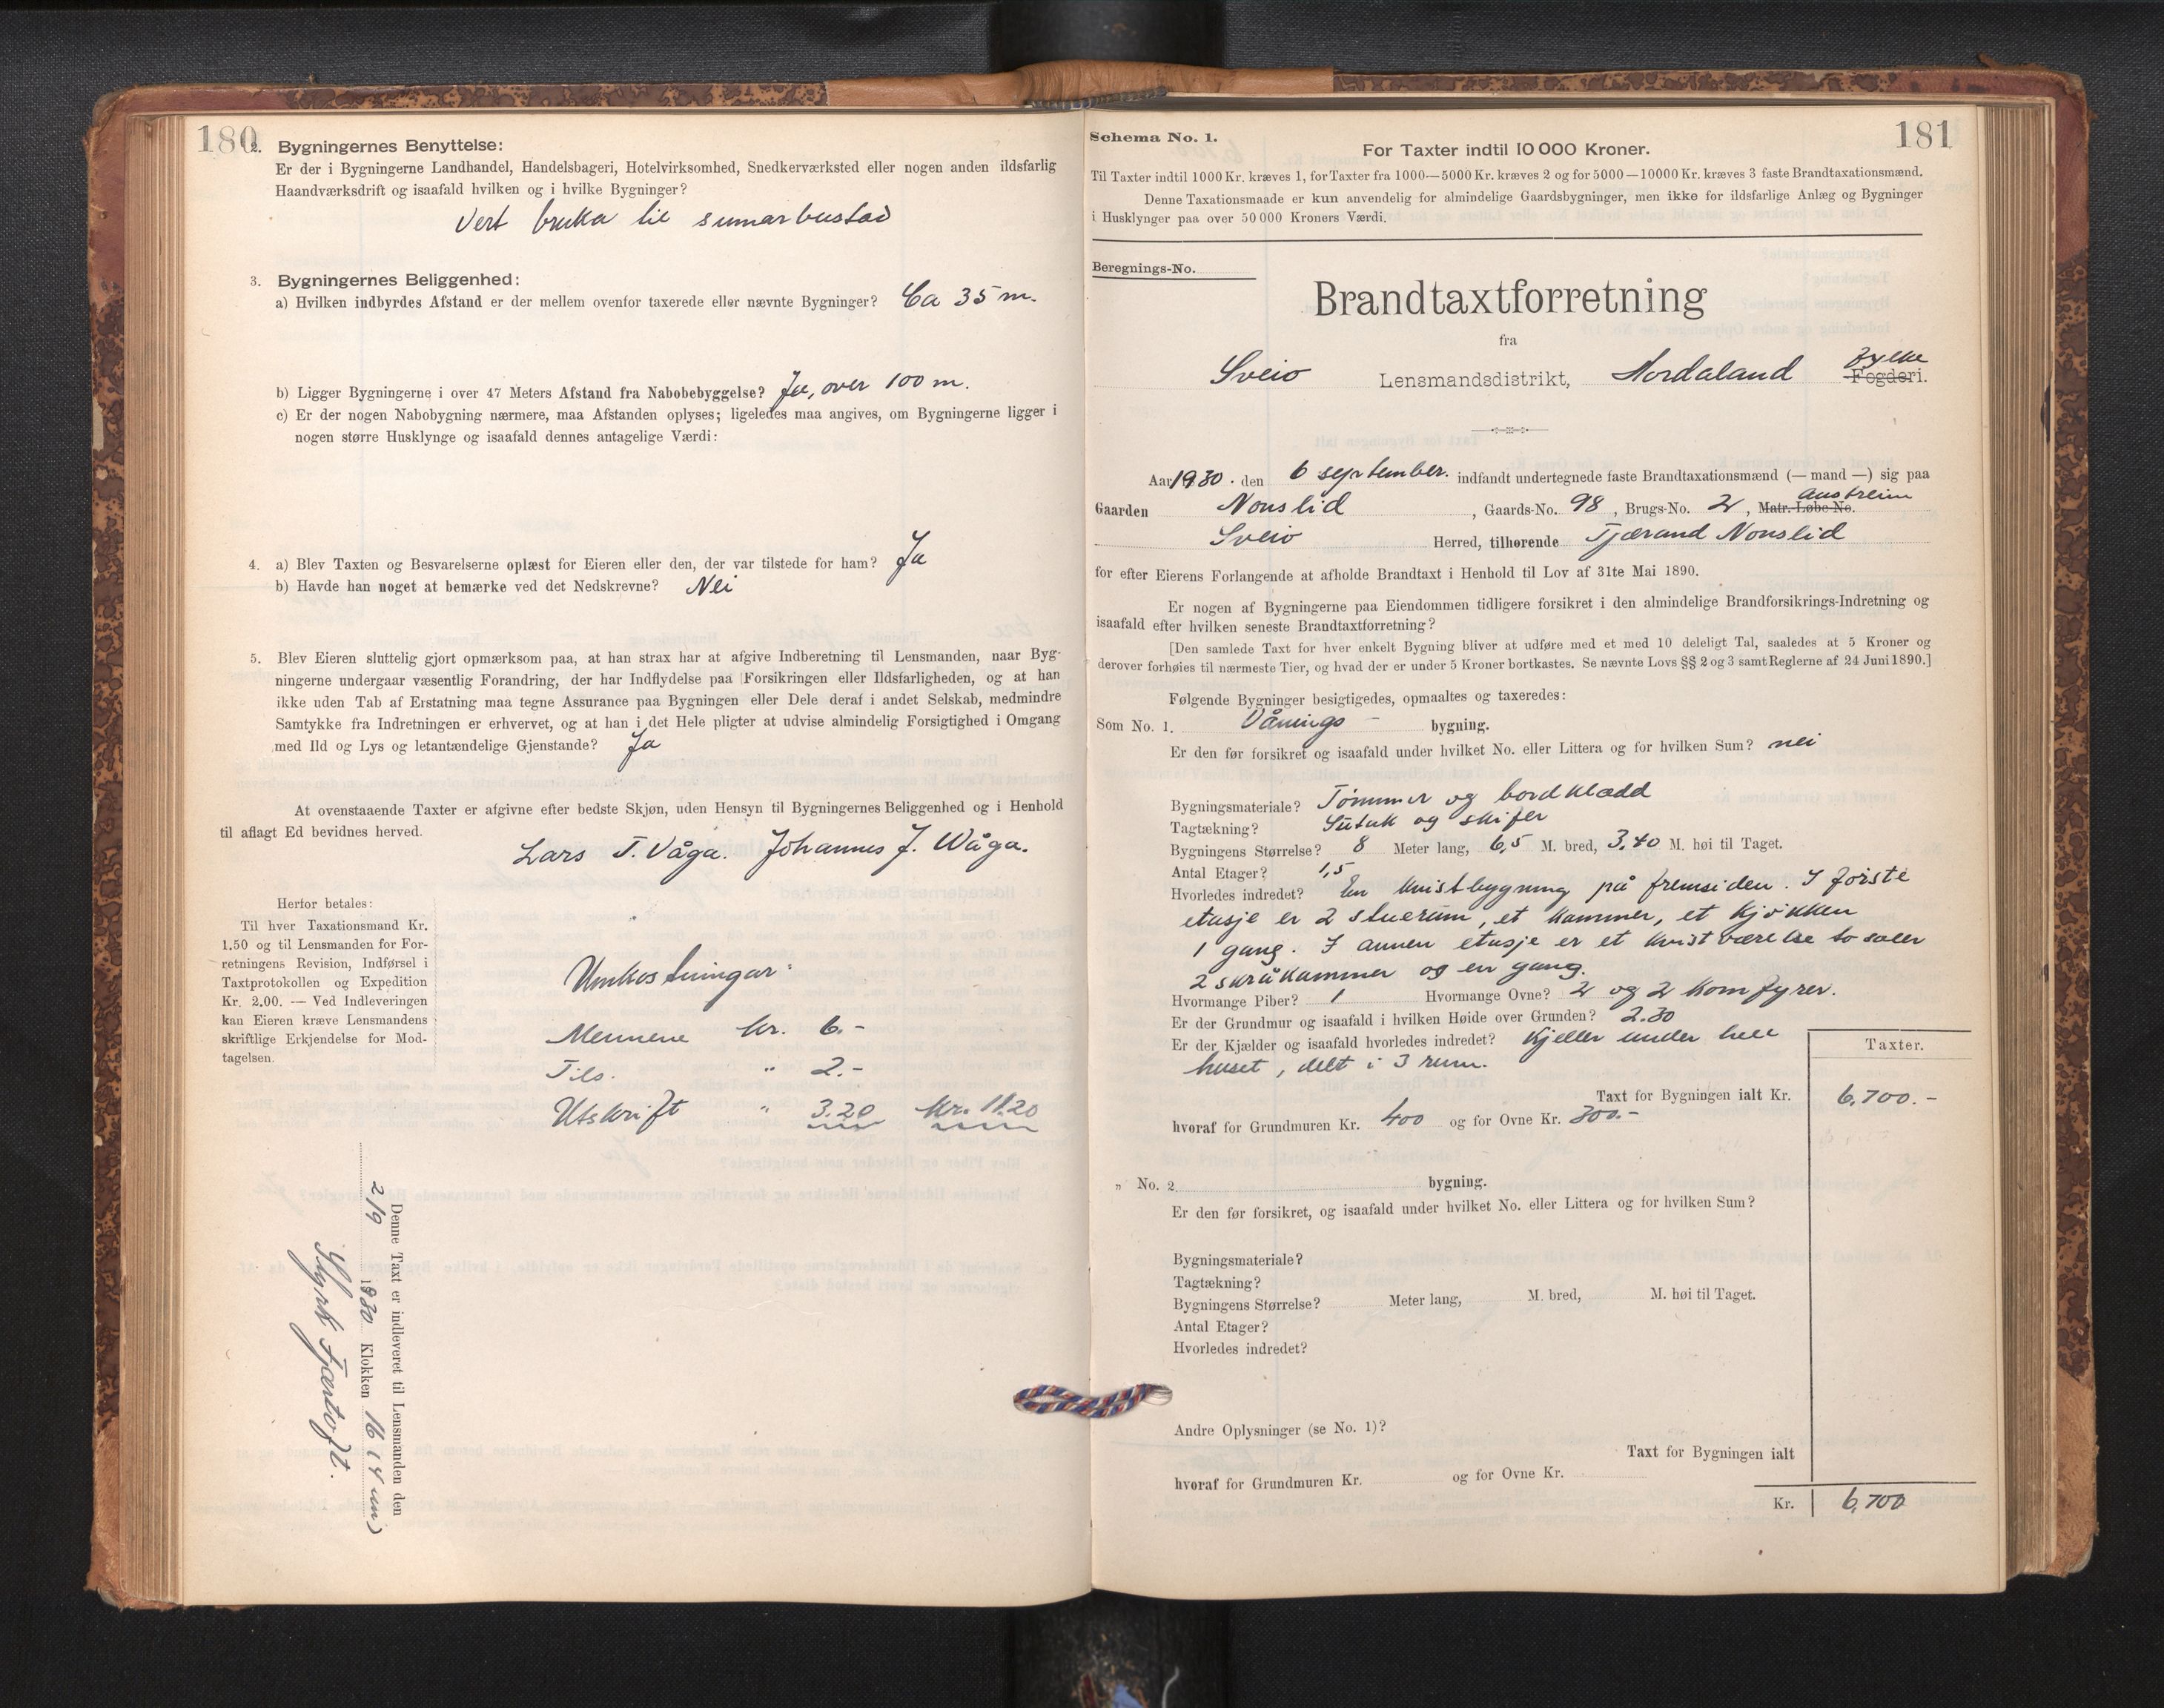 180
2. Bygningernes Benyttelse:
Er der i Bygningerne Landhandel, Handelsbageri, Hotelvirksomhed, Snedkerværksted eller nogen anden ildsfarlig
Haandværksdrift og isaafald hvilken og i hvilke Bygninger?
Vert bruka til sumarbustad
3. Bygningernes Beliggenhed:
a) Hvilken indbyrdes Afstand er der mellem ovenfor taxerede eller nævnte Bygninger? Ca 35 m.
b) Ligger Bygningerne i over 47 Meters Afstand fra Nabobebyggelse? Ja, over 100 m.
c) Er der nogen Nabobygning nærmere, maa Afstanden oplyses; ligeledes maa angives, om Bygningerne ligger i
nogen større Husklynge og isaafald dennes antagelige Værdi:
4. a) Blev Taxten og Besvarelserne oplæst for Eieren eller den, der var tilstede for ham? Ja
b) Havde han noget at bemærke ved det Nedskrevne? Nei
5. Blev Eieren sluttelig gjort opmærksom paa, at han strax har at afgive Indberetning til Lensmanden, naar Byg-
ningerne undergaar væsentlig Forandring, der har Indflydelse paa Forsikringen eller Ildsfarligheden, og at han
ikke uden Tab af Erstatning maa tegne Assurance paa Bygningen eller Dele deraf i andet Selskab, medmindre
Samtykke fra Indretningen er erhvervet, og at han i det Hele pligter at udvise almindelig Forsigtighed i Omgang
med Ild og Lys og letantændelige Gjenstande? Ja
At ovenstaaende Taxter er afgivne efter bedste Skjøn, uden Hensyn til Bygningernes Beliggenhed og i Henhold
til aflagt Ed bevidnes herved.
Lars T. Våga. Johannes J. Wåga.
Herfor betales:
Til hver Taxationsmand Kr.
1.50 og til Lensmanden for For-
retningens Revision, Indførsel i
Taxtprotokollen og Expedition
Kr. 2.00. — Ved Indleveringen
kan Eieren kræve Lensmandens
skriftlige Erkjendelse for Mod-
tagelsen.
Umkostningar:
Mennene kr. 6.-
Tils. " 2.-
Utskrift " 3.20 Kr. 11.20
Denne Taxt er indleveret til Lensmanden den
2/9 1930 Klokken 16 (4 em)
Styrk Fjærtoft.
181
Schema No. 1.
For Taxter indtil 10 000 Kroner.
Til Taxter indtil 1000 Kr. kræves 1, for Taxter fra 1000—5000 Kr. kræves 2 og for 5000—10000 Kr. kræves 3 faste Brandtaxationsmænd.
Denne Taxationsmaade er kun anvendelig for almindelige Gaardsbygninger, men ikke for ildsfarlige Anlæg og Bygninger
i Husklynger paa over 50 000 Kroners Værdi.
Beregnings-No.
Brandtaxtforretning
fra
Sveio Lensmandsdistrikt, Hordaland Fogderi. fylke
Aar 1930. den 6 september. indfandt undertegnede faste Brandtaxationsmænd (— mand —) sig paa
Gaarden Nonslid, Gaards-No. 98, Brugs-No. 2, Matr.-Løbe-No. Austreim
Sveio Herred, tilhørende Tjærand Nonslid
for efter Eierens Forlangende at afholde Brandtaxt i Henhold til Lov af 31te Mai 1890.
Er nogen af Bygningerne paa Eiendommen tidligere forsikret i den almindelige Brandforsikrings-Indretning og
isaafald efter hvilken seneste Brandtaxtforretning?
[Den samlede Taxt for hver enkelt Bygning bliver at udføre med et med 10 deleligt Tal, saaledes at 5 Kroner og
derover forhøies til nærmeste Tier, og hvad der er under 5 Kroner bortkastes. Se nævnte Lovs §§ 2 og 3 samt Reglerne af 24 Juni 1890.]
Følgende Bygninger besigtigedes, opmaaltes og taxeredes:
Som No. 1. Vånings - bygning.
Er den før forsikret og isaafald under hvilket No. eller Littera og for hvilken Sum? nei
Bygningsmateriale? Tømmer og bordklædd
Tagtækning? Sutak og skifer
Bygningens Størrelse? 8 Meter lang, 6,5 M. bred, 3.40 M. høi til Taget.
Antal Etager? 1,5
Hvorledes indredet? En kvistbygning på fremsiden. I første
etasje er 2 stuerum, et kammer, et kjøkken
1 gang. I annen etasje er et kvistværelse to saler
2 skråkammer og en gang.
Hvormange Piber? 1 Hvormange Ovne? 2 og 2 komfyrer.
Er der Grundmur og isaafald i hvilken Høide over Grunden? 2.30
Er der Kjælder og isaafald hvorledes indredet? Kjeller under hele
huset, delt i 3 rum.
Taxter.
Taxt for Bygningen ialt Kr. 6,700.-
hvoraf for Grundmuren Kr. 400 og for Ovne Kr. 300.-
" No. 2. bygning.
Er den før forsikret, og isaafald under hvilket No. eller Littera og for hvilken Sum?
Bygningsmateriale?
Tagtækning?
Bygningens Størrelse? Meter lang, M. bred, M. høi til Taget.
Antal Etager?
Hvorledes indredet?
Andre Oplysninger (se No. 1)?
Taxt for Bygningen ialt
hvoraf for Grundmuren Kr. og for Ovne Kr.
Kr. 6,700